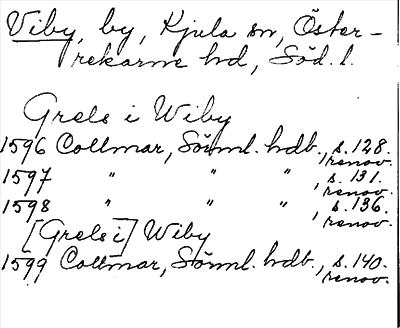 Viby, by, Kjula sn, Öster-
rekarne hd, Söd. l.
Grels i Wiby
1596 Collmar, Sörml. hdb., s. 128.
renov.
1597 " " " , s. 131.
renov.
1598 " " " , s. 136.
renov.
[Grels i] Wiby
1599 Collmar, Sörml. hdb., s. 140.
renov.